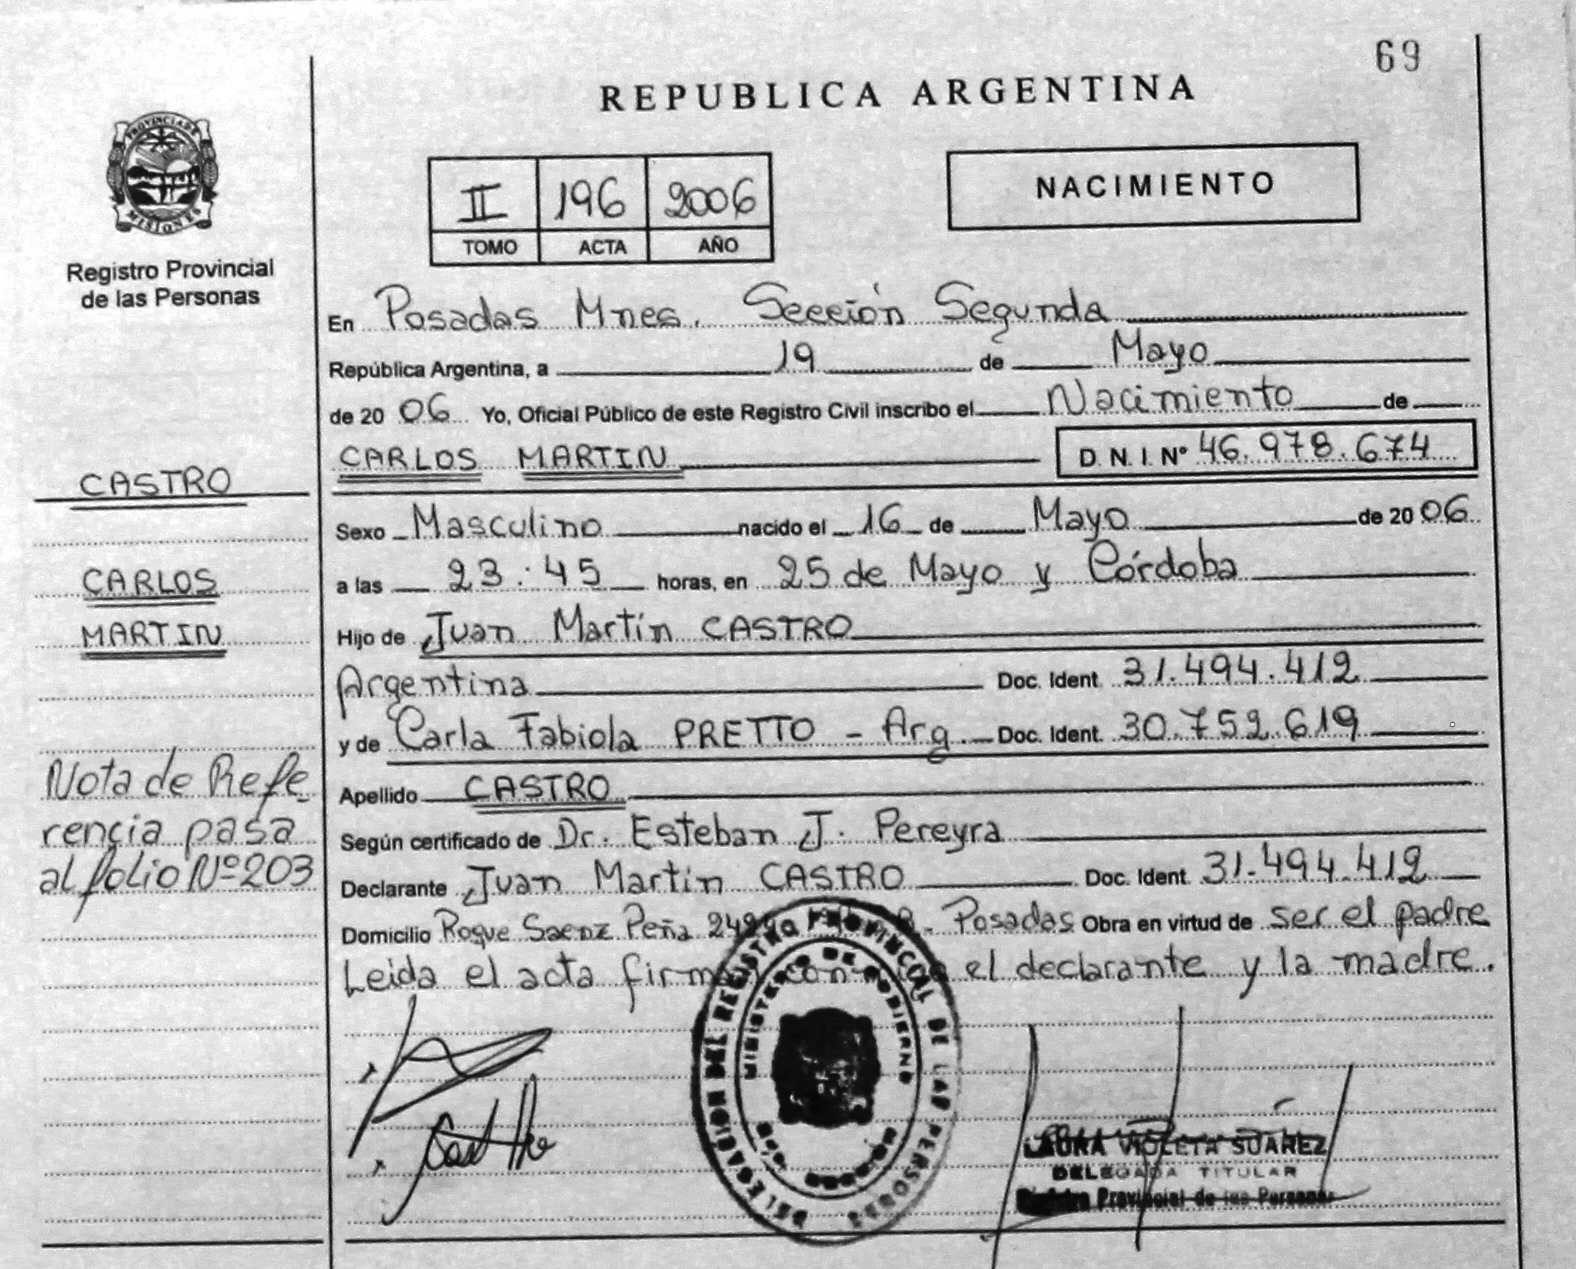 69
REPUBLICA ARGENTINA
PROVINCIA DE
MISIONES
Registro Provincial
de las Personas
II 196 2006
TOMO ACTA AÑO
NACIMIENTO
En Posadas Mnes. Sección Segunda
República Argentina, a 19 de Mayo
de 20 06 Yo, Oficial Público de este Registro Civil inscribo el Nacimiento de
CARLOS MARTIN D.N.I. Nº 46.978.674
CASTRO
CARLOS
MARTIN
Nota de Refe-
rencia pasa
al folio Nº 203
Sexo Masculino nacido el 16 de Mayo de 20 06
a las 23:45 horas, en 25 de Mayo y Córdoba
Hijo de Juan Martín CASTRO
Argentina Doc. Ident. 31.494.412
y de Carla Fabiola PRETTO - Arg. Doc. Ident. 30.752.619
Apellido CASTRO
Según certificado de Dr. Esteban J. Pereyra
Declarante Juan Martín CASTRO Doc. Ident. 31.494.412
Domicilio Roque Saenz Peña Posadas Obra en virtud de ser el padre
Leida el acta el declarante y la madre.
DELEGACION DEL REGISTRO PROVINCIAL DE LAS PERSONAS
MINISTERIO DE GOBIERNO
LAURA VIOLETA SUAREZ
DELEGADA TITULAR
Registro Provincial de las Personas